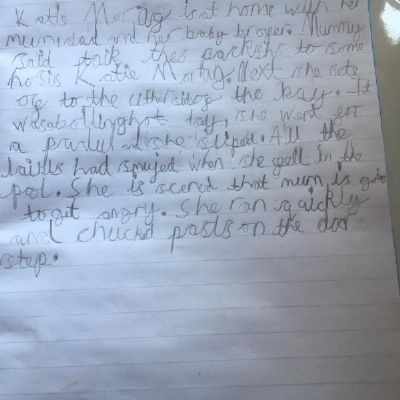 Katie Morag is at home with her
mum dad and her baby broyer. Mummy
said taik thes parkshs to some
hosis Katie Morag. Next she sets
og to the uther side og the bay. It
was a boilling hot day, she went gor
a pardul and she sliped. All the
had smujed when she gell in the
pool. She is scered that mum is going
to get angry. She ran quickly
and chucked pasls on the door
step.